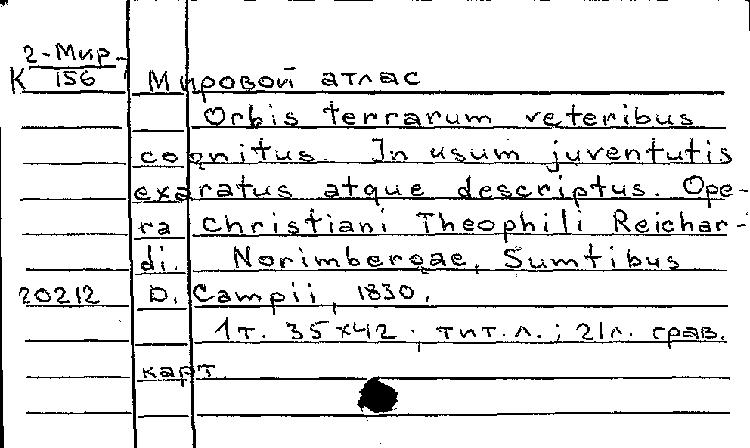 2-Мир.
К 156
Мировой атлас
Orbis terrarum veteribus
cognitus. In usum juventutis
exaratus atque descriptus. Ope-
ra Christiani Theophili Reichar-
di. Norimbergae, Sumtibus
20212 D. Campii, 1830.
1т. 35x42; тит.л.; 21л. грав.
карт.